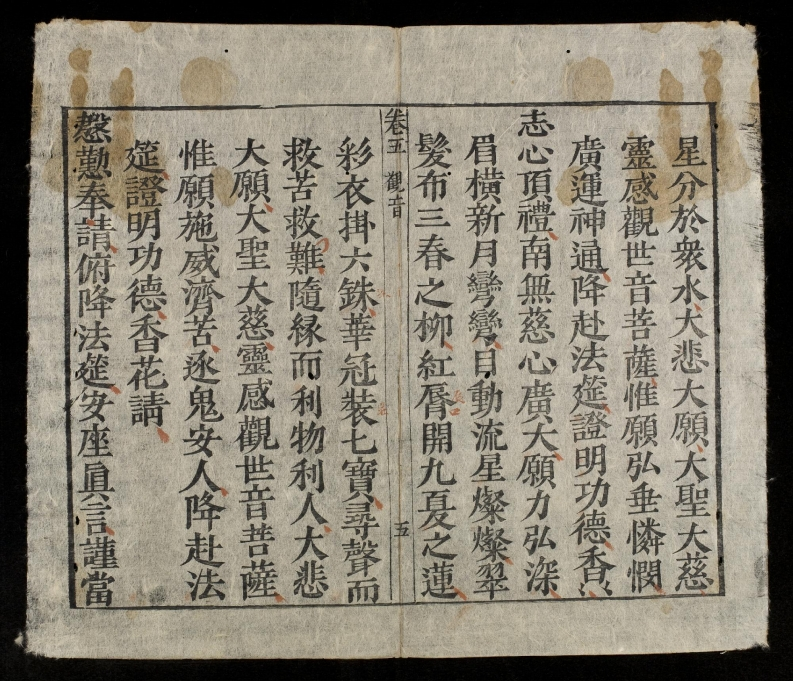 星分於衆水大悲大願大聖大慈
靈感觀世音菩薩惟願弘垂憐憫
廣運神通降赴法筵證明功德香〻
志心頂禮南無慈心廣大願力弘深
眉橫新月彎彎目動流星燦燦翠
髮布三春之柳紅脣開九夏之蓮
卷五 觀音 五
彩衣掛六銖華冠裝七寶尋聲而
救苦救難隨緣而利物利人大悲
大願大聖大慈靈感觀世音菩薩
惟願施威濟苦逐鬼安人降赴法
筵證明功德香花請
慇懃奉請俯降法筵安座眞言謹當